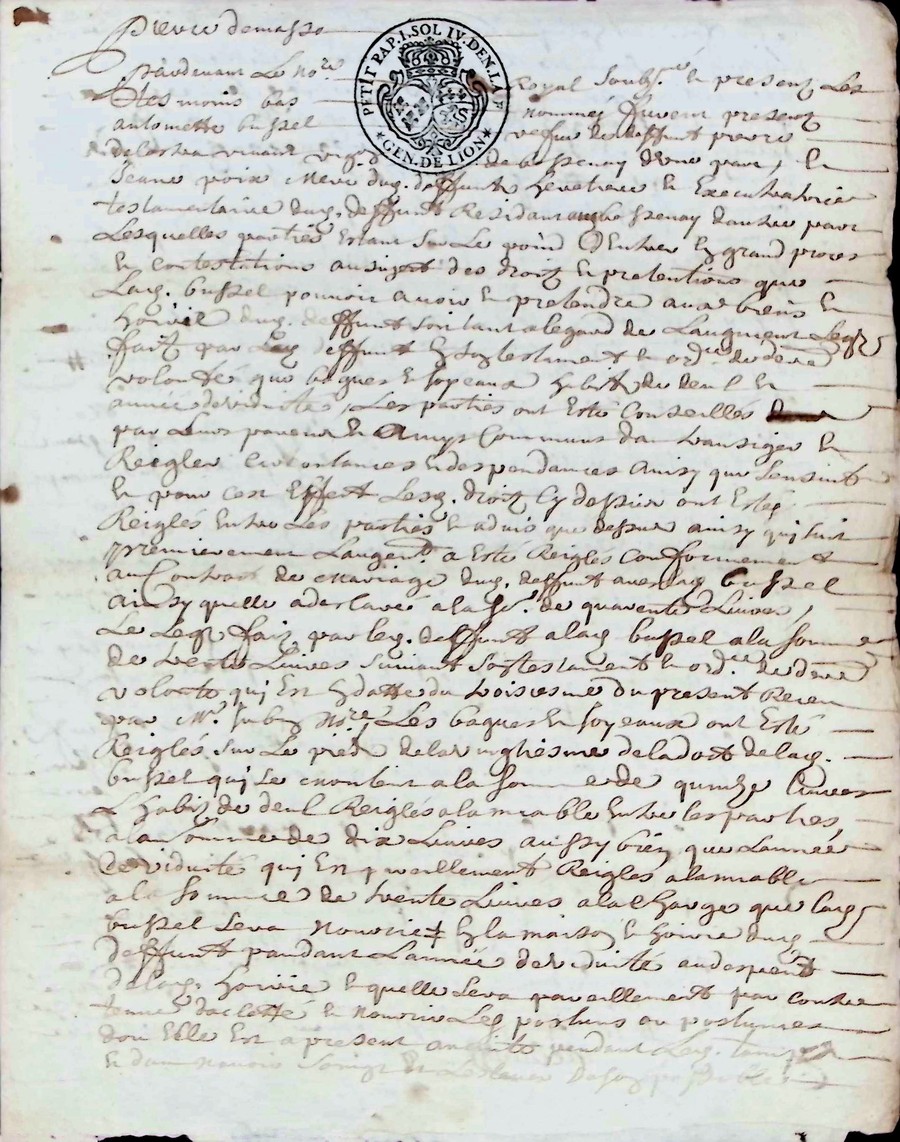 Pierre demasso
PETIT PAP. I. SOL IV. DEN. LA F
GEN. DE LION
Pardevant Le no.re Royal soubz.né En presentz Les
tesmoins bas nommés furent presentz
antoinette bussel vefve de deffunt pierre
vivant de bessenay d'une part, Et
Jeanne poix mere dud. deffunt heretiere Et Executeresse
testamentaire dud. deffunt Residant aud. bessenay dautre part
Lesquelles parties Estant sur Le point D'Entrer En grand proces
Et Contestations au sujet des droitz Et pretentions que
Lad. bussel pouvoit avoir Et pretendre aux biens Et
hoirie dud. deffunt soit tant a legard de Laugment Legz
faitz par led. deffunt En son testament Et ord.ce de derre
volonté que bagues Et joyeaux habitz de deuil Et
année de viduité, Les parties ont Esté Conseillés
par Leurs parens Et Amys Communs dan transiger Et
Reigler Circonstances Et despendances Ainsy que sensuit
Et pour cest Effect Lesd. droitz Cy dessus ont Estés
Reiglés Entre Les parties Et advis que dessus ainsy qui suit
premierement Laugent. a Esté Reiglés Conformement
au Contrat de Mariage dud. deffunt avec lad. bussel
Ainsy quelle a declaré a la so. de quarente Livres,
Le Legz faitz par led. deffunt a lad. bussel a la somme
de trente Livres suivant son testament Et ord.ce de derre
volonté qui Est En datte du troisiesme du present Receu
par M.e no.re, Les bagues Et joyeaux ont Esté
Reiglés sur Le pied de la vingtiesme de la dot de lad.
bussel qui se montent a la somme de quinze Livres
L'habitz de deuil Reiglés a lamiable Entre les parties
a la somme de dix Livres aussy bien que Lannée
de viduité qui Est pareillement Reiglés alamiable
a la somme de trente Livres a la Charge que lad.
bussel sera nourrie En la maison Et hoirie dud.
deffunt pandant Lannée de viduité au despent
de lad. hoirie Et quelle sera pareillement par contre
tenue dalletté Et nourrir Les postums ou postumes
don Elle Est a present anceinte pendant Led. temps